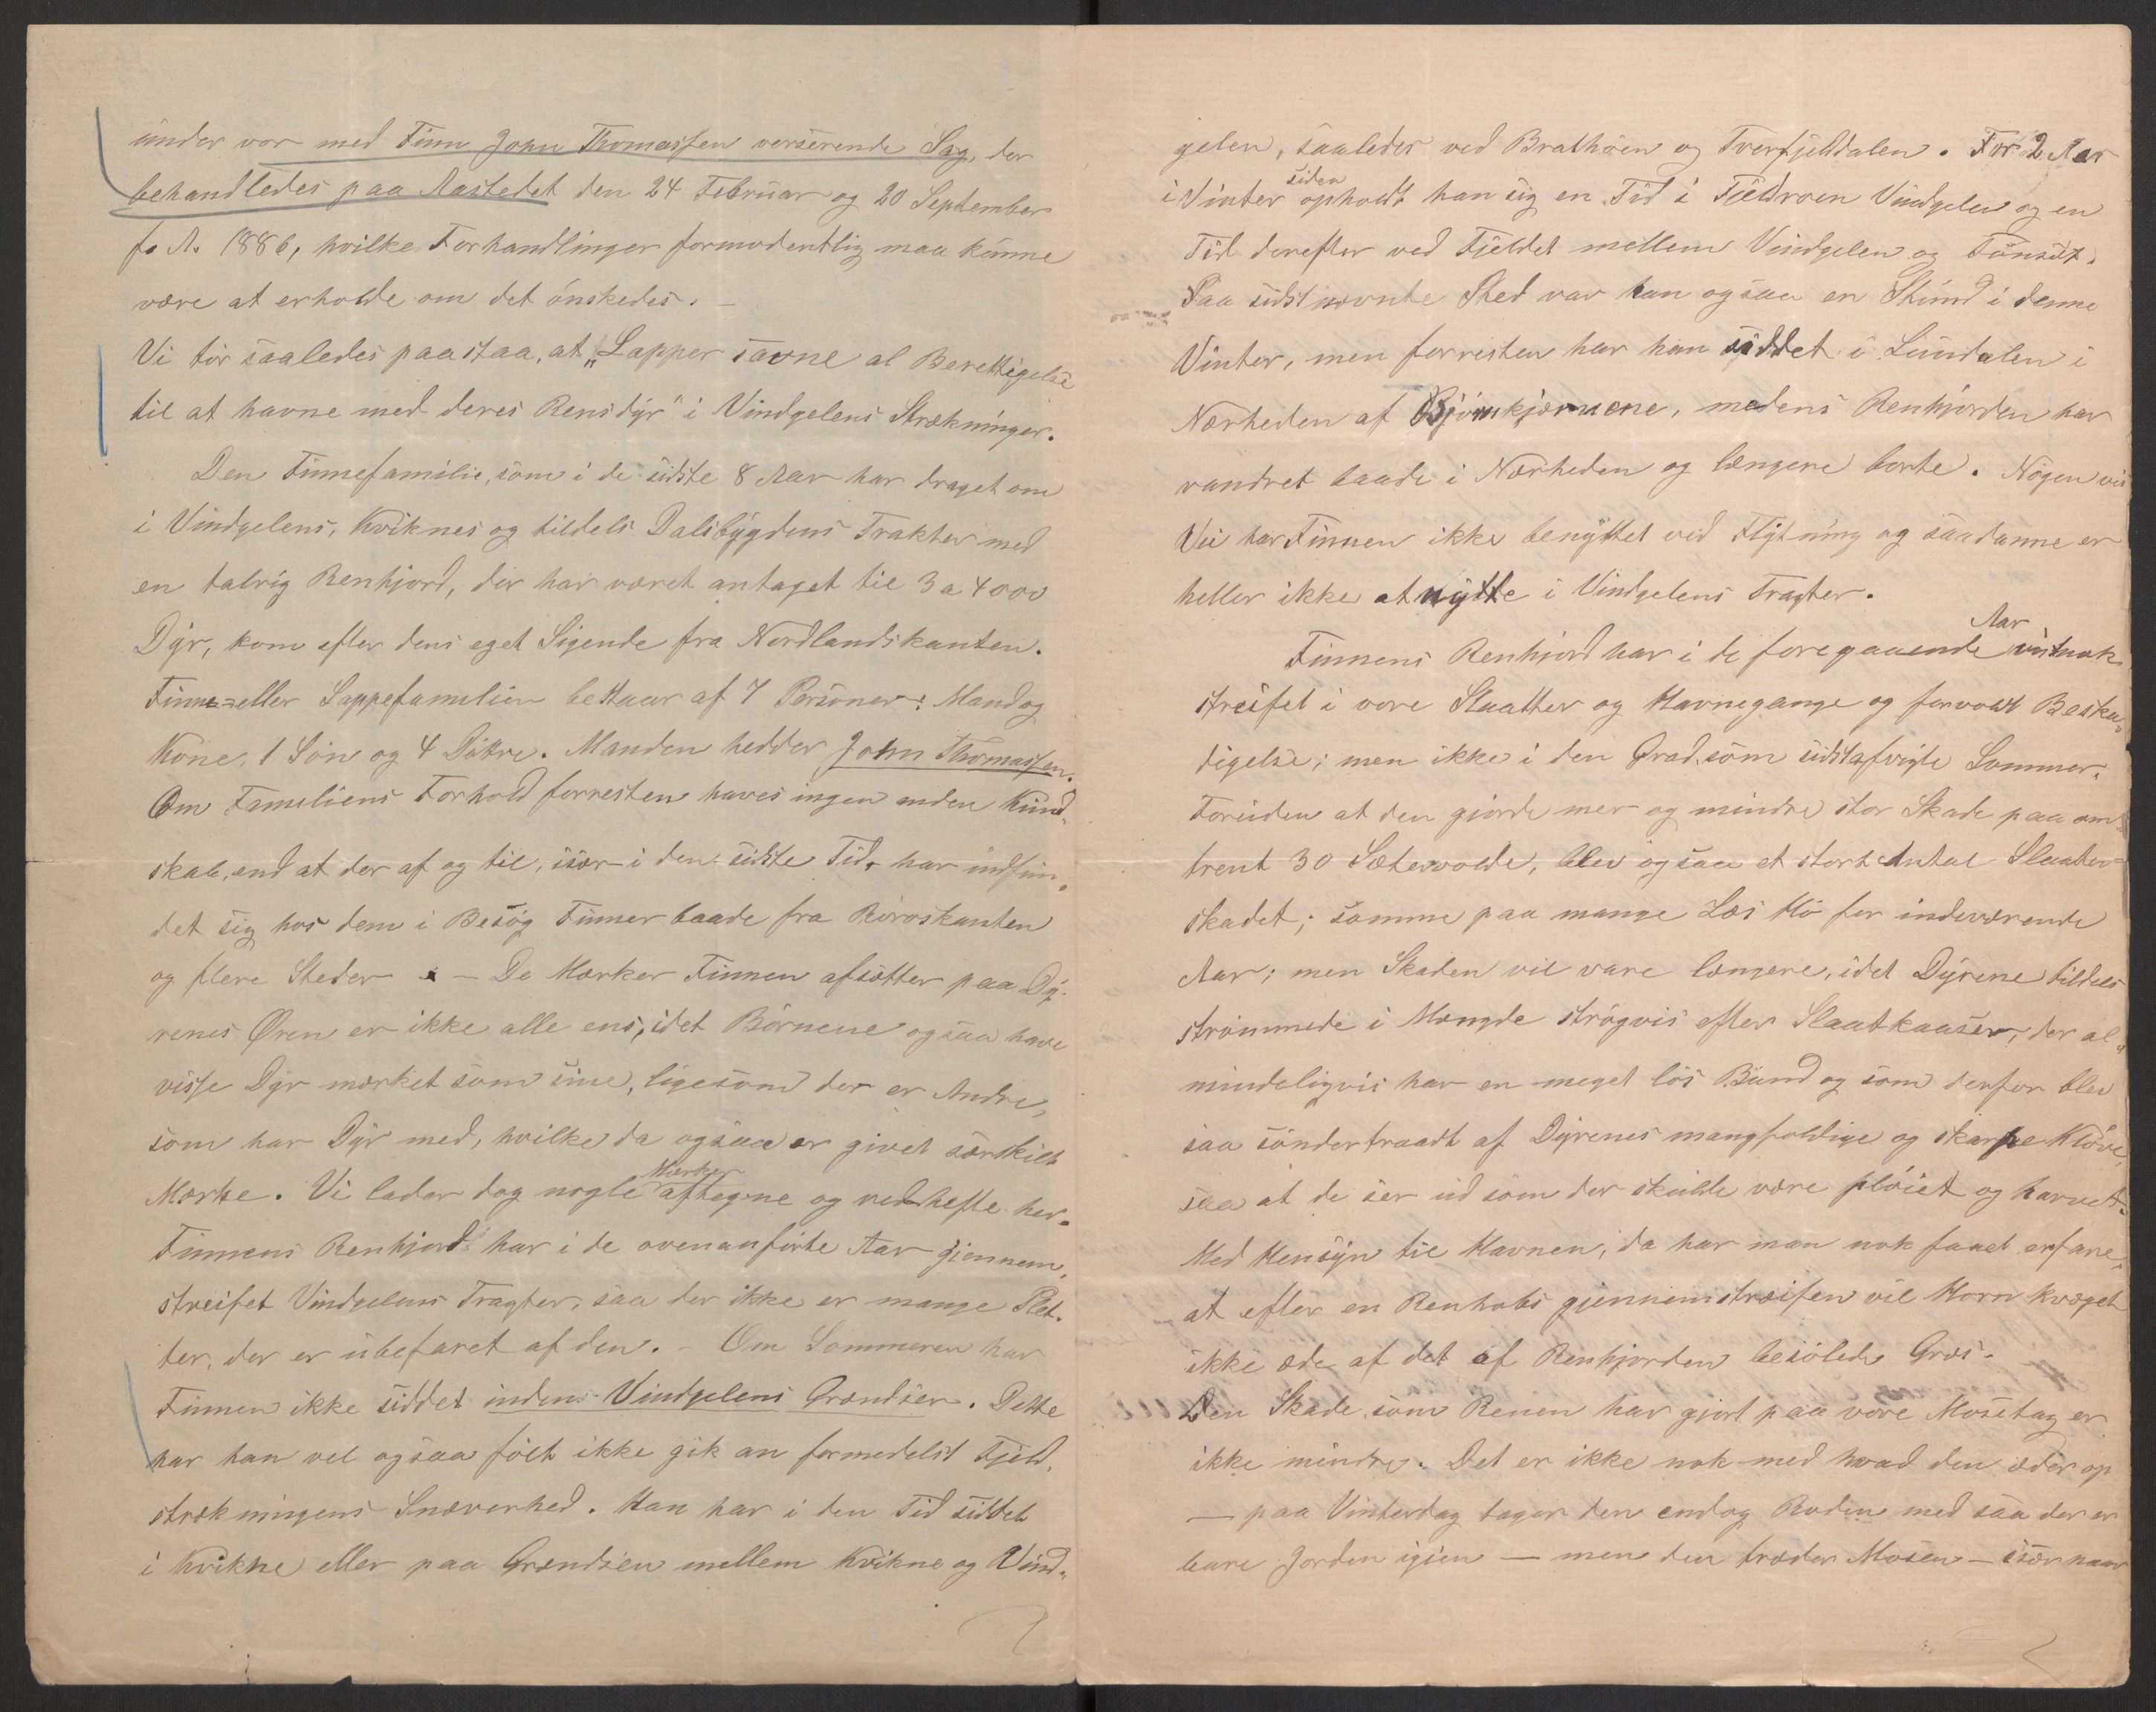 under vor med Finn John Thomassen verserende Sag, der
behandledes paa Aastedet den 24 Februar og 20 September
f. A. 1886, hvilke Forhandlinger formodentlig maa kunne
være at erholde om det ønskedes. —
Vi tør saaledes paastaa, at „Lapper savne al Berettigelse
til at havne med deres Rensdyr" i Vindgelens Strækninger.
Den Finnefamilie, som i de sidste 8 Aar har draget om
i Vindgelens, Kviknes og tildels Dalsbygdens Trakter med
en talrig Renhjord, der har været antaget til 3 a 4000
Dyr, kom efter dens eget Sigende fra Nordlandskanten.
Finne- eller Lappefamilien bestaar af 7 Personer: Mand og
Kone, 1 Søn og 4 Døttre. Manden hedder John Thomassen.
Om Familiens Forhold forresten haves ingen anden Kund-
skab, end at der af og til, især i den sidste Tid, har indfun-
det sig hos dem i Besøg Finner baade fra Røroskanten
og flere Steder — De Mærker Finnen afsætter paa Dy-
renes Øren er ikke alle ens, idet Børnene ogsaa have
visse Dyr mærket som sine, ligesom der er Andre,
som har Dyr med, hvilke da ogsaa er givet særskilt
Mærke. Vi lader dog nogle Mærker aftegne og vedhefte her.
Finnens Renhjord har i de ovenanførte Aar gjennem-
streifet Vindgelens Tragter, saa der ikke er mange Plet-
ter, der er ubefaret af den. – Om Sommeren har
Finnen ikke siddet indens Vindgelens Grændser. Dette
har han vel ogsaa følt ikke gik an formedelst Fjeld-
strækningens Snæverhed. Han har i den Tid siddet
i Kvikne eller paa Grændsen mellem Kvikne og Vind-
gelen, saaledes ved Brathøen og Tverfjeldalen. For 2 Aar
siden
i Vinter opholdt han sig en Tid i Fjeldroen Vindgelen og en
Tid derefter ved Fjeldet mellem Vindgelen og Tønset.
Paa sidstnævnte Sted var han ogsaa en Stund i denne
Vinter, men forresten har han siddet i Lundalen i
Nærheden af Bjørnkjærnene, medens Renhjorden har
vandret baade i Nærheden og længere borte. Nogen vis
Vei har Finnen ikke benyttet ved Flytning og saadanne er
heller ikke at nytte i Vindgelens Tragter.
Aar
Finnens Renhjord har i de foregaaende vistnok
streifet i vore Slaatter og Havnegange og forvoldt Beska-
digelse; men ikke i den Grad, som sidstafvigte Sommer.
Foruden at den gjorde mer og mindre stor Skade paa om-
trent 30 Sætervolde, blev ogsaa et stort Antal Slaatter
skadet; somme paa mange Læs Hø for indeværende
Aar; men Skaden vil vare længere, idet Dyrene tildels
strømmede i Mængde strøgvis efter Slaatkaaser, der al-
mindeligvis har en meget løs Bund og som derfor blev
saa søndertraadt af Dyrenes mangfoldige og skarpe Kløve,
saa at de ser ud som der skulde være pløiet og harvet.
Med Hensyn til Havnen, da har man nok faaet erfare,
at efter en Renhobs gjennemstreifen vil Hornkvæget
ikke æde af det af Renhjorden besølede Græs.
Den Skade, som Renen har gjort paa vore Mosetag er
ikke mindre. Det er ikke nok med hvad den æder op
— paa Vinterdag tager den endog Roden med saa der er
bare Jorden igjen — men den træder Mosen – især naar